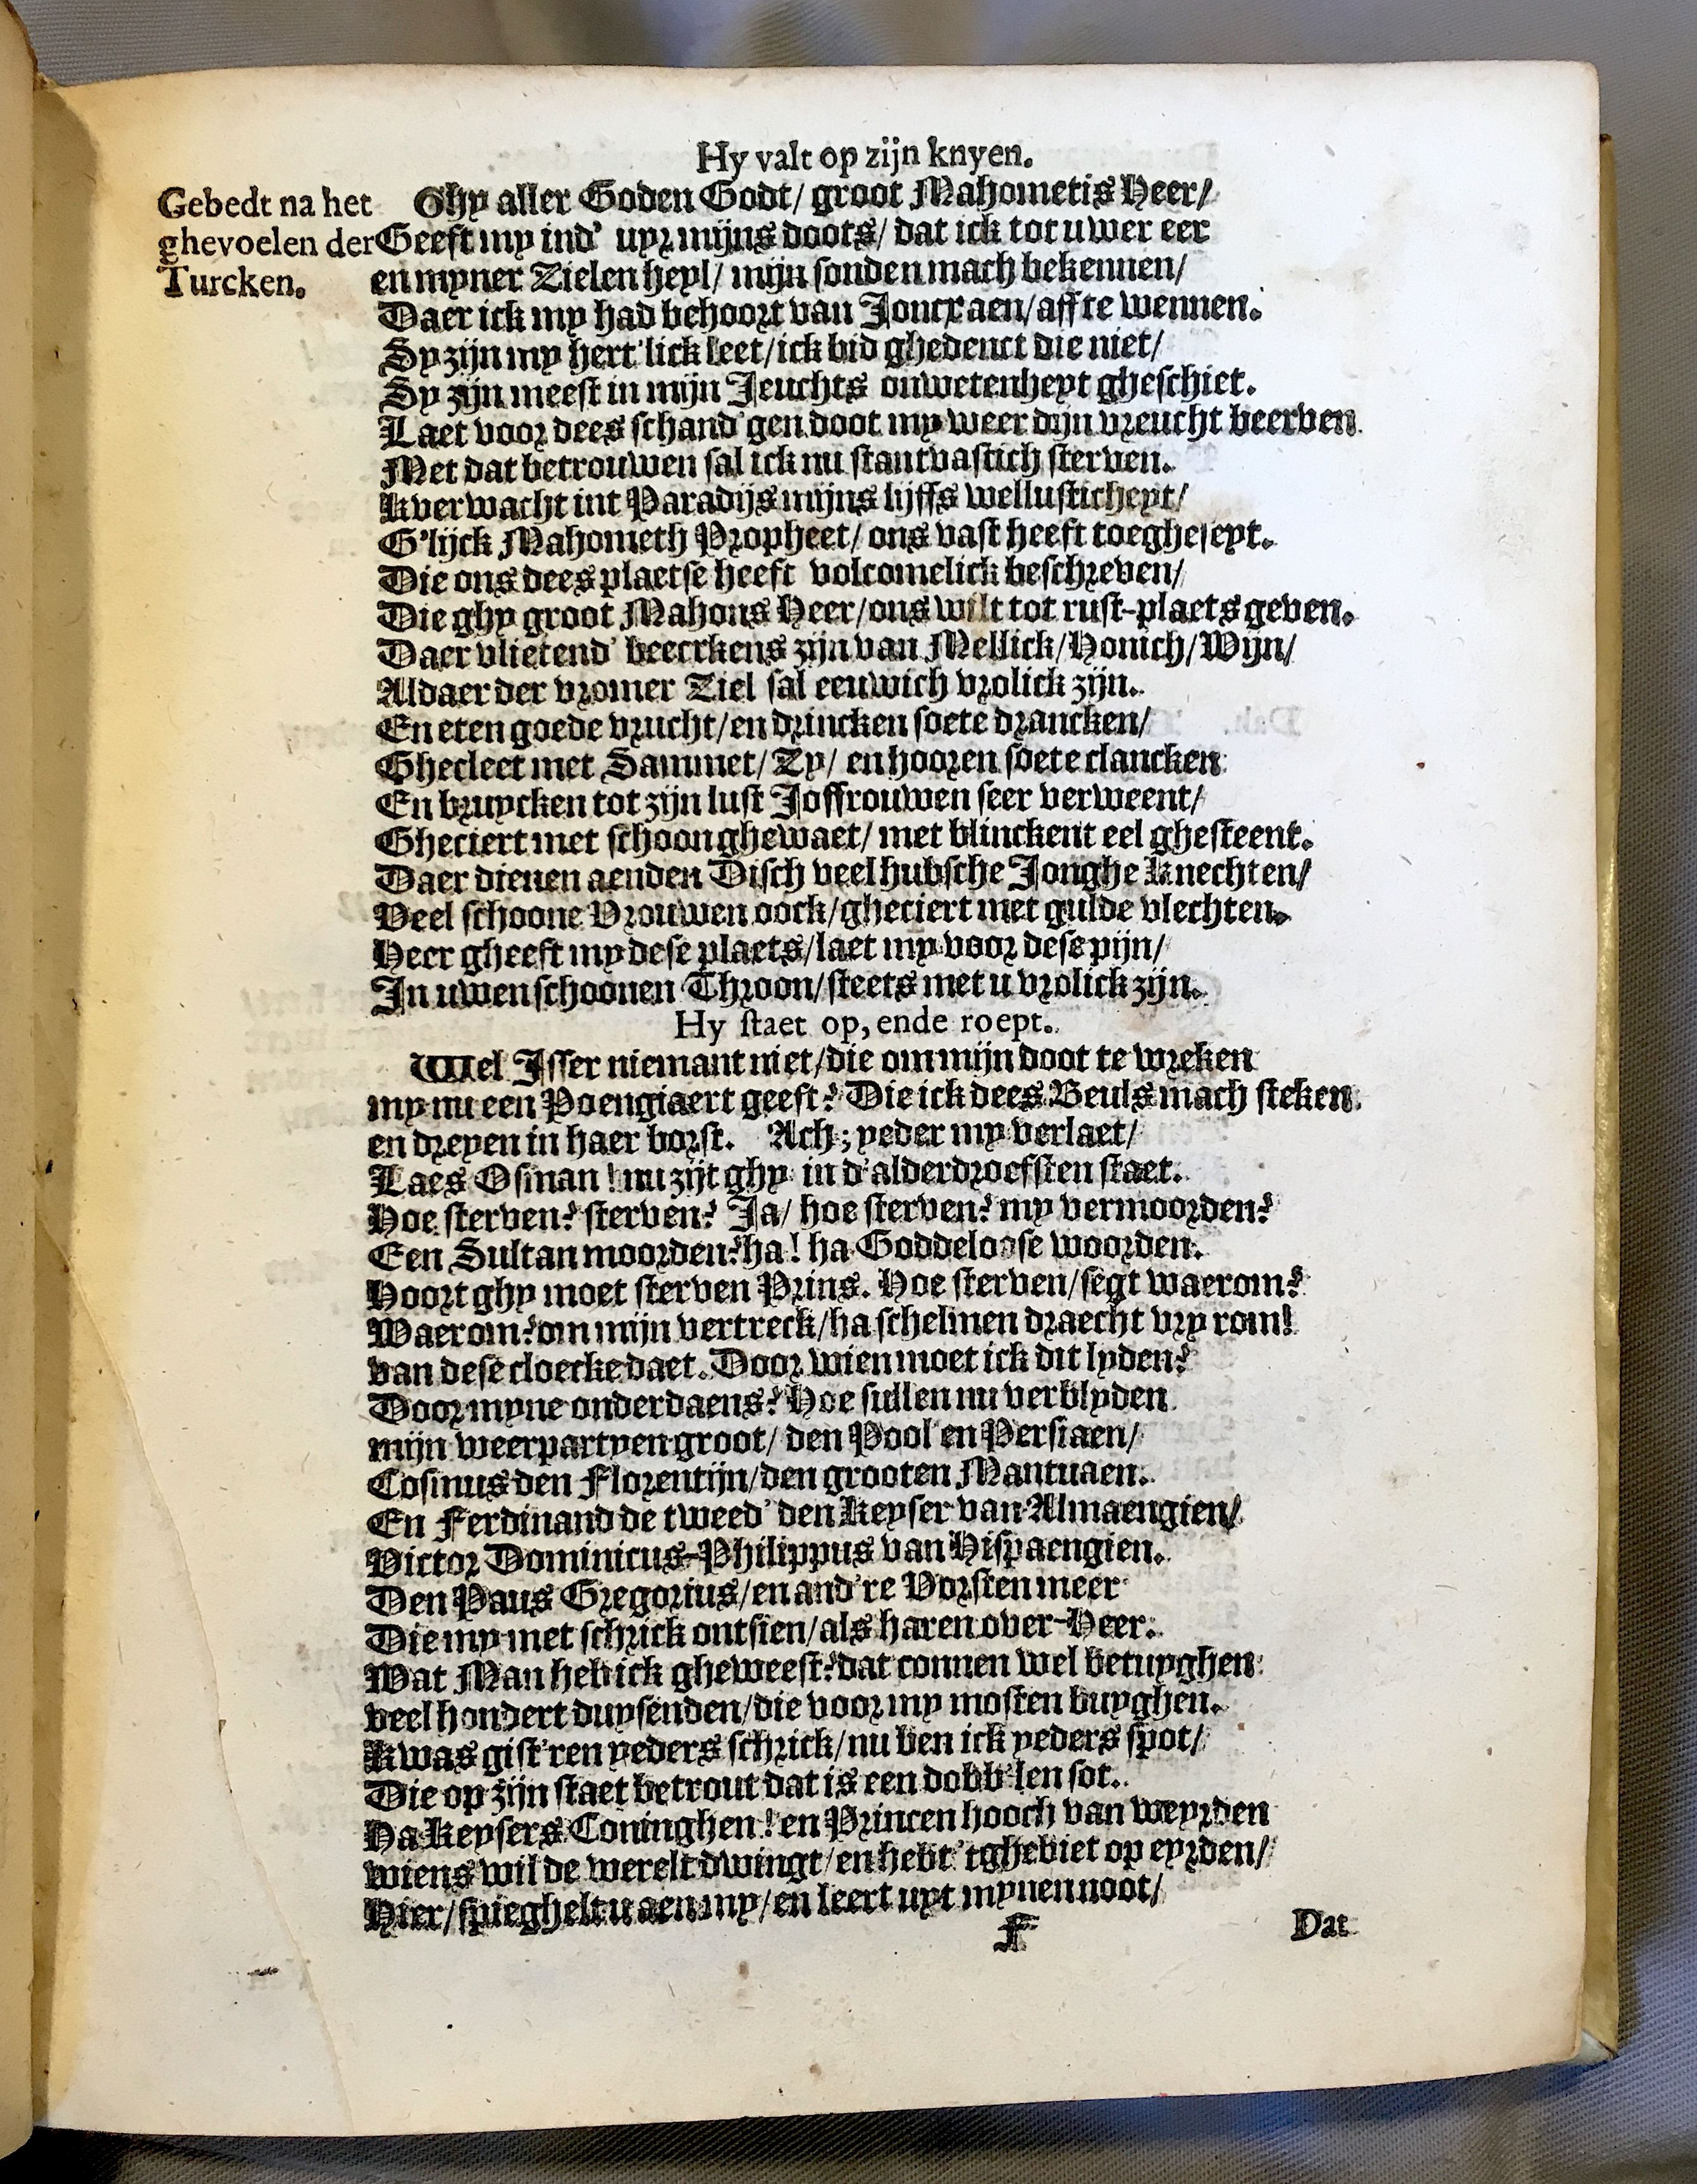 Hy valt op zijn knyen.
Gebedt na het
ghevoelen der
Turcken.
Ghy aller Goden Godt/ groot Mahometis Heer/
Geeft my ind' uyr mijns doots/ dat ick tot uwer eer
en myner Zielen heyl/ mijn sonden mach bekennen/
Daer ick my had behoort van Joncx aen/ aff te wennen.
Sy zijn my hert'lick leet/ ick bid ghedenct die niet/
Sy zijn meest in mijn Jeuchts onwetenheyt gheschiet.
Laet voor dees schand'gen doot my weer dijn vreucht beerven
Met dat betrouwen sal ick nu stantvastich sterven.
K verwacht int Paradijs mijns lijffs wellusticheyt/
G'lijck Mahometh Propheet/ ons vast heeft toegheseyt.
Die ons dees plaetse heeft volcomelick beschreven/
Die ghy groot Mahons Heer/ ons wilt tot rust-plaets geven.
Daer vlietend' beeckens zijn van Mellick/ Honich/ Wijn/
Aldaer der vromer Ziel sal eeuwich vrolick zijn.
En eten goede vrucht/ en drincken soete drancken/
Ghecleet met Sammet/ Zy/ en hooren soete clancken
En bruycken tot zijn lust Joffrouwen seer verweent/
Gheciert met schoon ghewaet/ met blinckent eel ghesteent.
Daer dienen aenden Disch veel hubsche Jonghe Knechten/
Veel schoone Vrouwen oock/ gheciert met gulde vlechten.
Heer gheeft my dese plaets/ laet my voor dese pijn/
In uwen schoonen Throon/ steets met u vrolick zijn.
Hy staet op, ende roept.
Wel Isser niemant niet/ die om mijn doot te wreken
my nu een Poengiaert geeft? Die ick dees Beuls mach steken
en dreyen in haer borst. Ach; yeder my verlaet/
Laes Osman! nu zijt ghy in d'alderdroefsten staet.
Hoe sterven? sterven? Ja/ hoe sterven? my vermoorden?
Een Sultan moorden? ha! ha Goddeloose woorden.
Hoort ghy moet sterven Prins. Hoe sterven/ segt waerom?
Waerom? om mijn vertreck/ ha schelmen draecht vry rom!
van dese cloecke daet. Door wien moet ick dit lyden?
Door myne onderdaens? Hoe sullen nu verblyden
mijn weerpartyen groot/ den Pool en Persiaen/
Cosmus den Florentijn/ den grooten Mantuaen.
En Ferdinand de tweed' den Keyser van Almaengien/
Victor Dominicus-Philippus van Hispaengien.
Den Paus Gregorius/ en and're Vorsten meer
Die my met schrick ontsien/ als haren over-Heer.
Wat Man heb ick gheweest? dat connen wel betuyghen
veel hondert duysenden/ die voor my mosten buyghen.
K was gist'ren yeders schrick/ nu ben ick yeders spot/
Die op zijn staet betrout dat is een dobb'len sot.
Ha Keysers Coninghen! en Princen hooch van weyrden
wiens wil de werelt dwingt/ en hebt 'tghebiet op eyrden/
Hier/ spieghelt u aen my/ en leert uyt mynen noot/
F
Dat